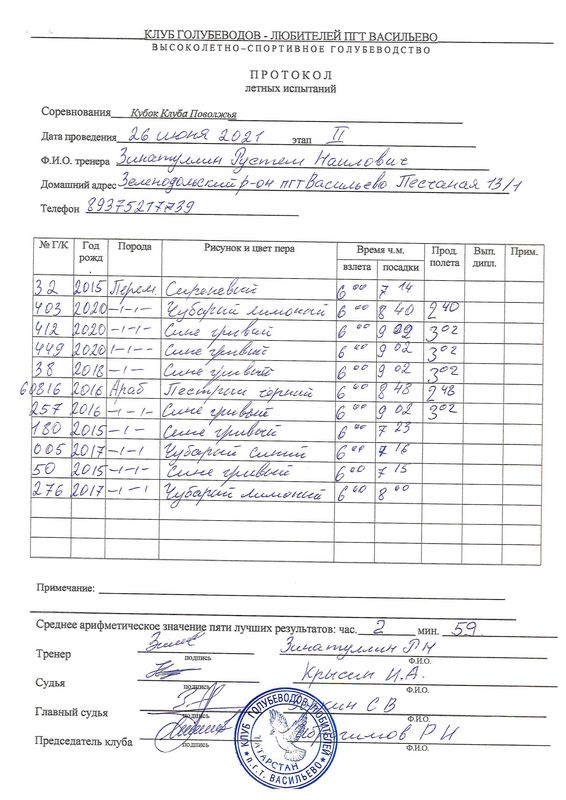 КЛУБ ГОЛУБЕВОДОВ - ЛЮБИТЕЛЕЙ ПГТ ВАСИЛЬЕВО
ВЫСОКОЛЕТНО–СПОРТИВНОЕ ГОЛУБЕВОДСТВО
ПРОТОКОЛ
летных испытаний
Соревнования Кубок Клуба Поволжья
Дата проведения 26 июня 2021 этап II
Ф.И.О. тренера Зинатуллин Рустем Наилович
Домашний адрес Зеленодольский р-он пгт Васильево Песчаная 13/1
Телефон 89375217739
№ Г/К Год рожд. Порода Рисунок и цвет пера Время ч.м. Прод. полета Вып. дипл. Прим.
взлета посадки
32 2015 Перем Сиреневый 6 00 7 14
403 2020 –ı–ı– Чубарый лимоный 6 00 8 40 2 40
412 2020 –ı–ı– Сине гривый 6 00 9 02 3 02
449 2020 ı–ı–– Сине гривый 6 00 9 02 3 02
38 2018 –ı– Сине гривый 6 00 9 02 3 02
60816 2016 Араб Пестрый чорний 6 00 8 48 2 48
257 2016 –ı–ı– Сине гривый 6 00 9 02 3 02
180 2015 –ı– Сине гривый 6 00 7 23
005 2017 –ı–ı Чубарый синий 6 00 7 16
50 2015 –ı–ı– Сине гривый 6 00 7 15
276 2017 –ı–ı Чубарый лимоный 6 00 8 00
Примечание:
Среднее арифметическое значение пяти лучших результатов: час. 2 мин. 59
Тренер Зинатуллин РН
подпись Ф.И.О.
Судья Крысин И.А.
подпись Ф.И.О.
Главный судья СВ
подпись Ф.И.О.
Председатель клуба Р И
подпись Ф.И.О.
КЛУБ ГОЛУБЕВОДОВ-ЛЮБИТЕЛЕЙ
ТАТАРСТАН
п.г.т. ВАСИЛЬЕВО